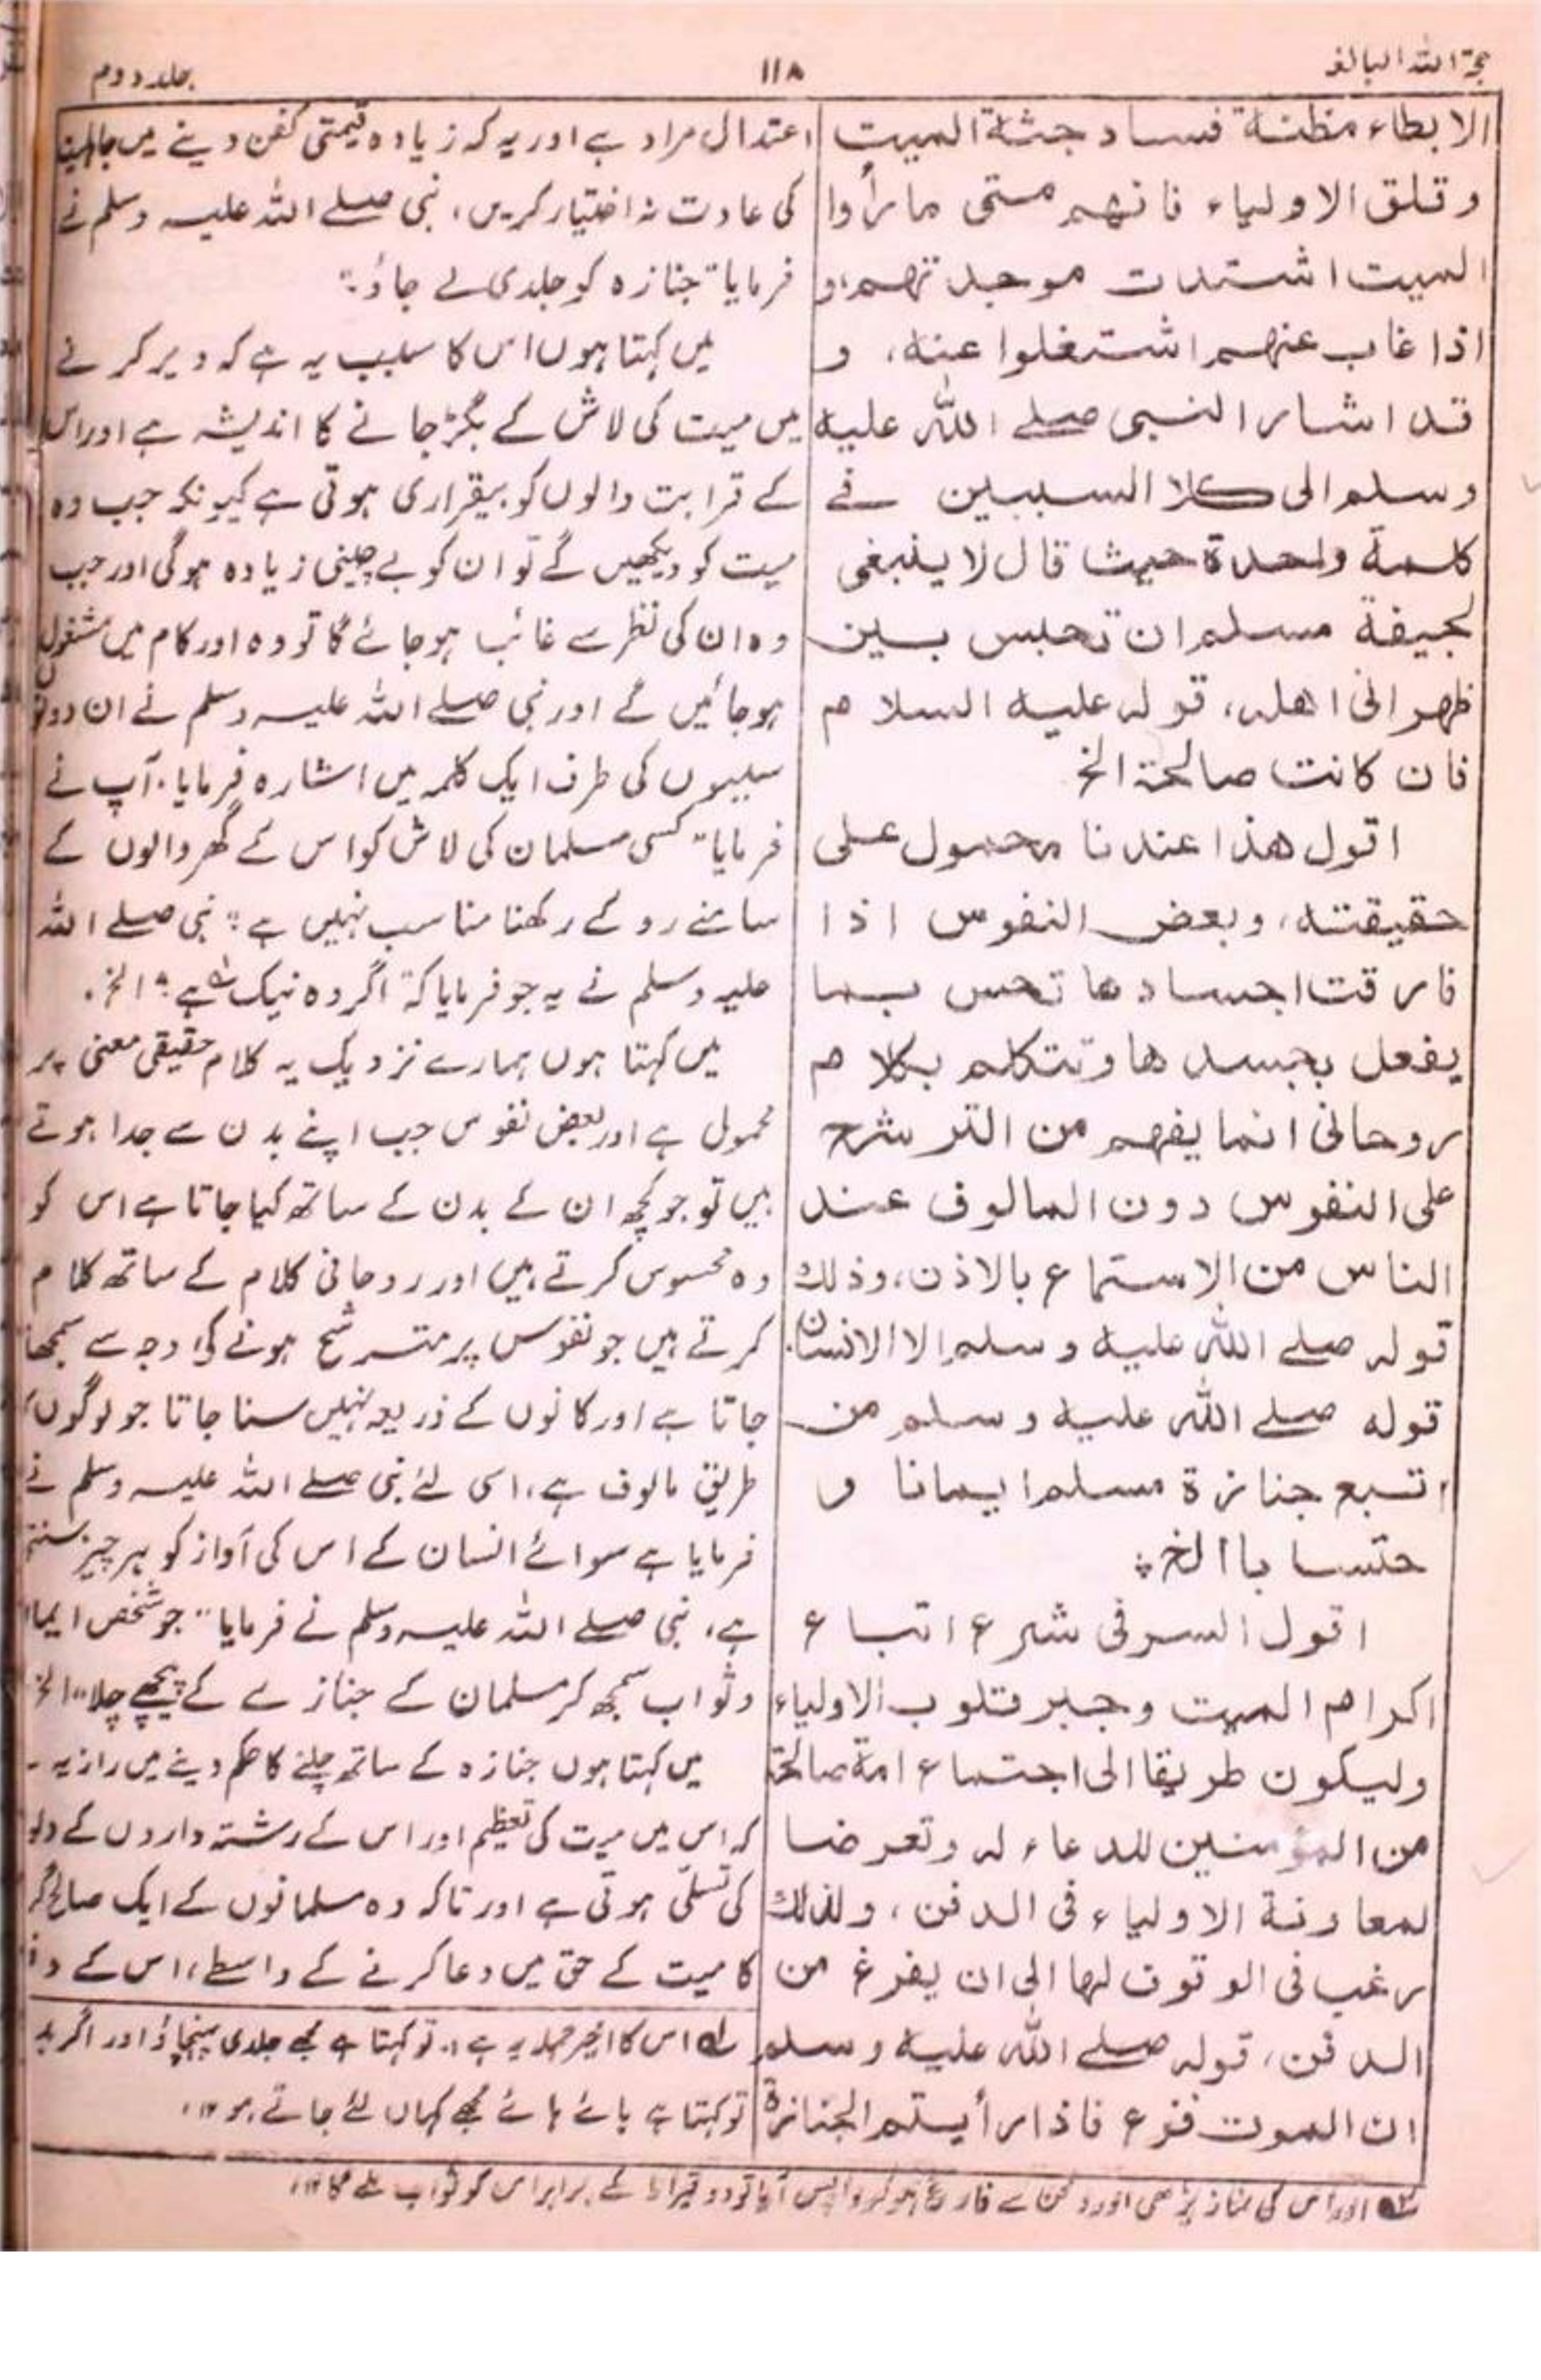 حجۃ اللہ البالغہ
۱۱۸
جلد دوم
الابطاء مظنة فساد جثة الميت
وقلق الاولياء فانهم متى ما رأوا
الميت اشتدت موجدتهم، و
اذا غاب عنهم اشتغلوا عنه، و
قد اشار النبی صلے اللہ علیہ
وسلم الى كلا السببين فے
كلمة واحدة حيث قال لا ينبغی
لجيفة مسلم ان تحبس بين
ظهرانی اهله، قوله عليه السلام
فان كانت صالحة الخ
اقول هذا عندنا محمول على
حقيقته، وبعض النفوس اذا
فارقت اجسادها تحس بما
يفعل بجسدها وتتكلم بكلام
روحانی انما يفهم من الترشح
على النفوس دون المالوف عند
الناس من الاستماع بالاذن، وذلك
قوله صلے اللہ علیہ وسلم الا الانسان
قوله صلے اللہ علیہ وسلم من
اتبع جنازة مسلم ايمانا و
حتسابا الخ
اقول السر فی شرع اتباع
اكرام الميت وجبر قلوب الاولياء
وليكون طريقا الى اجتماع امة صالحة
من المؤمنين للدعاء له وتعرضا
لمعاونة الاولياء فی الدفن، ولذلك
رغب فی الوقوف لها الى ان يفرغ من
الدفن، قوله صلے اللہ علیہ وسلم
ان الموت فزع فاذا رأيتم الجنازة
اعتدال مراد ہے اور یہ کہ زیادہ قیمتی کفن دینے میں جاہلیت
کی عادت نہ اختیار کریں، نبی صلے اللہ علیہ وسلم نے
فرمایا "جنازہ کو جلدی لے جاؤ"
میں کہتا ہوں اس کا سبب یہ ہے کہ دیر کرنے
میں میت کی لاش کے بگڑ جانے کا اندیشہ ہے اور اس
کے قرابت والوں کو بیقراری ہوتی ہے کیونکہ جب وہ
میت کو دیکھیں گے تو ان کو بے چینی زیادہ ہوگی اور جب
وہ ان کی نظر سے غائب ہو جائے گا تو وہ اور کام میں مشغول
ہو جائیں گے اور نبی صلے اللہ علیہ وسلم نے ان دونوں
سببوں کی طرف ایک کلمہ میں اشارہ فرمایا۔ آپ نے
فرمایا "کسی مسلمان کی لاش کو اس کے گھر والوں کے
سامنے روکے رکھنا مناسب نہیں ہے" نبی صلے اللہ
علیہ وسلم نے یہ جو فرمایا کہ "اگر وہ نیک ہے" الخ۔
میں کہتا ہوں ہمارے نزدیک یہ کلام حقیقی معنی پر
محمول ہے اور بعض نفوس جب اپنے بدن سے جدا ہوتے
ہیں تو جو کچھ ان کے بدن کے ساتھ کیا جاتا ہے اس کو
وہ محسوس کرتے ہیں اور روحانی کلام کے ساتھ کلام
کرتے ہیں جو نفوس پر مترشح ہونے کی وجہ سے سمجھا
جاتا ہے اور کانوں کے ذریعہ نہیں سنا جاتا جو لوگوں
طریق مالوف ہے، اسی لئے نبی صلے اللہ علیہ وسلم نے
فرمایا ہے سوائے انسان کے اس کی آواز کو ہر چیز سنتی
ہے، نبی صلے اللہ علیہ وسلم نے فرمایا "جو شخص ایما
و ثواب سمجھ کر مسلمان کے جنازے کے پیچھے چلا" الخ
میں کہتا ہوں جنازہ کے ساتھ چلنے کا حکم دینے میں راز یہ
کہ اس میں میت کی تعظیم اور اس کے رشتہ داروں کے دلو
کی تسلی ہوتی ہے اور تاکہ وہ مسلمانوں کے ایک صالح گر
کا میت کے حق میں دعا کرنے کے واسطے، اس کے دف
لہ اس کا اخیر جملہ یہ ہے، تو کہتا ہے مجھے جلدی پہنچاؤ اور اگر بد
تو کہتا ہے ہائے ہائے مجھے کہاں لئے جاتے ہو ۱۲،
لہ اور اس کی نماز پڑھی اور دفن سے فارغ ہو کر واپس آیا تو دو قیراط کے برابر اس کو ثواب ملے گا ۱۲،